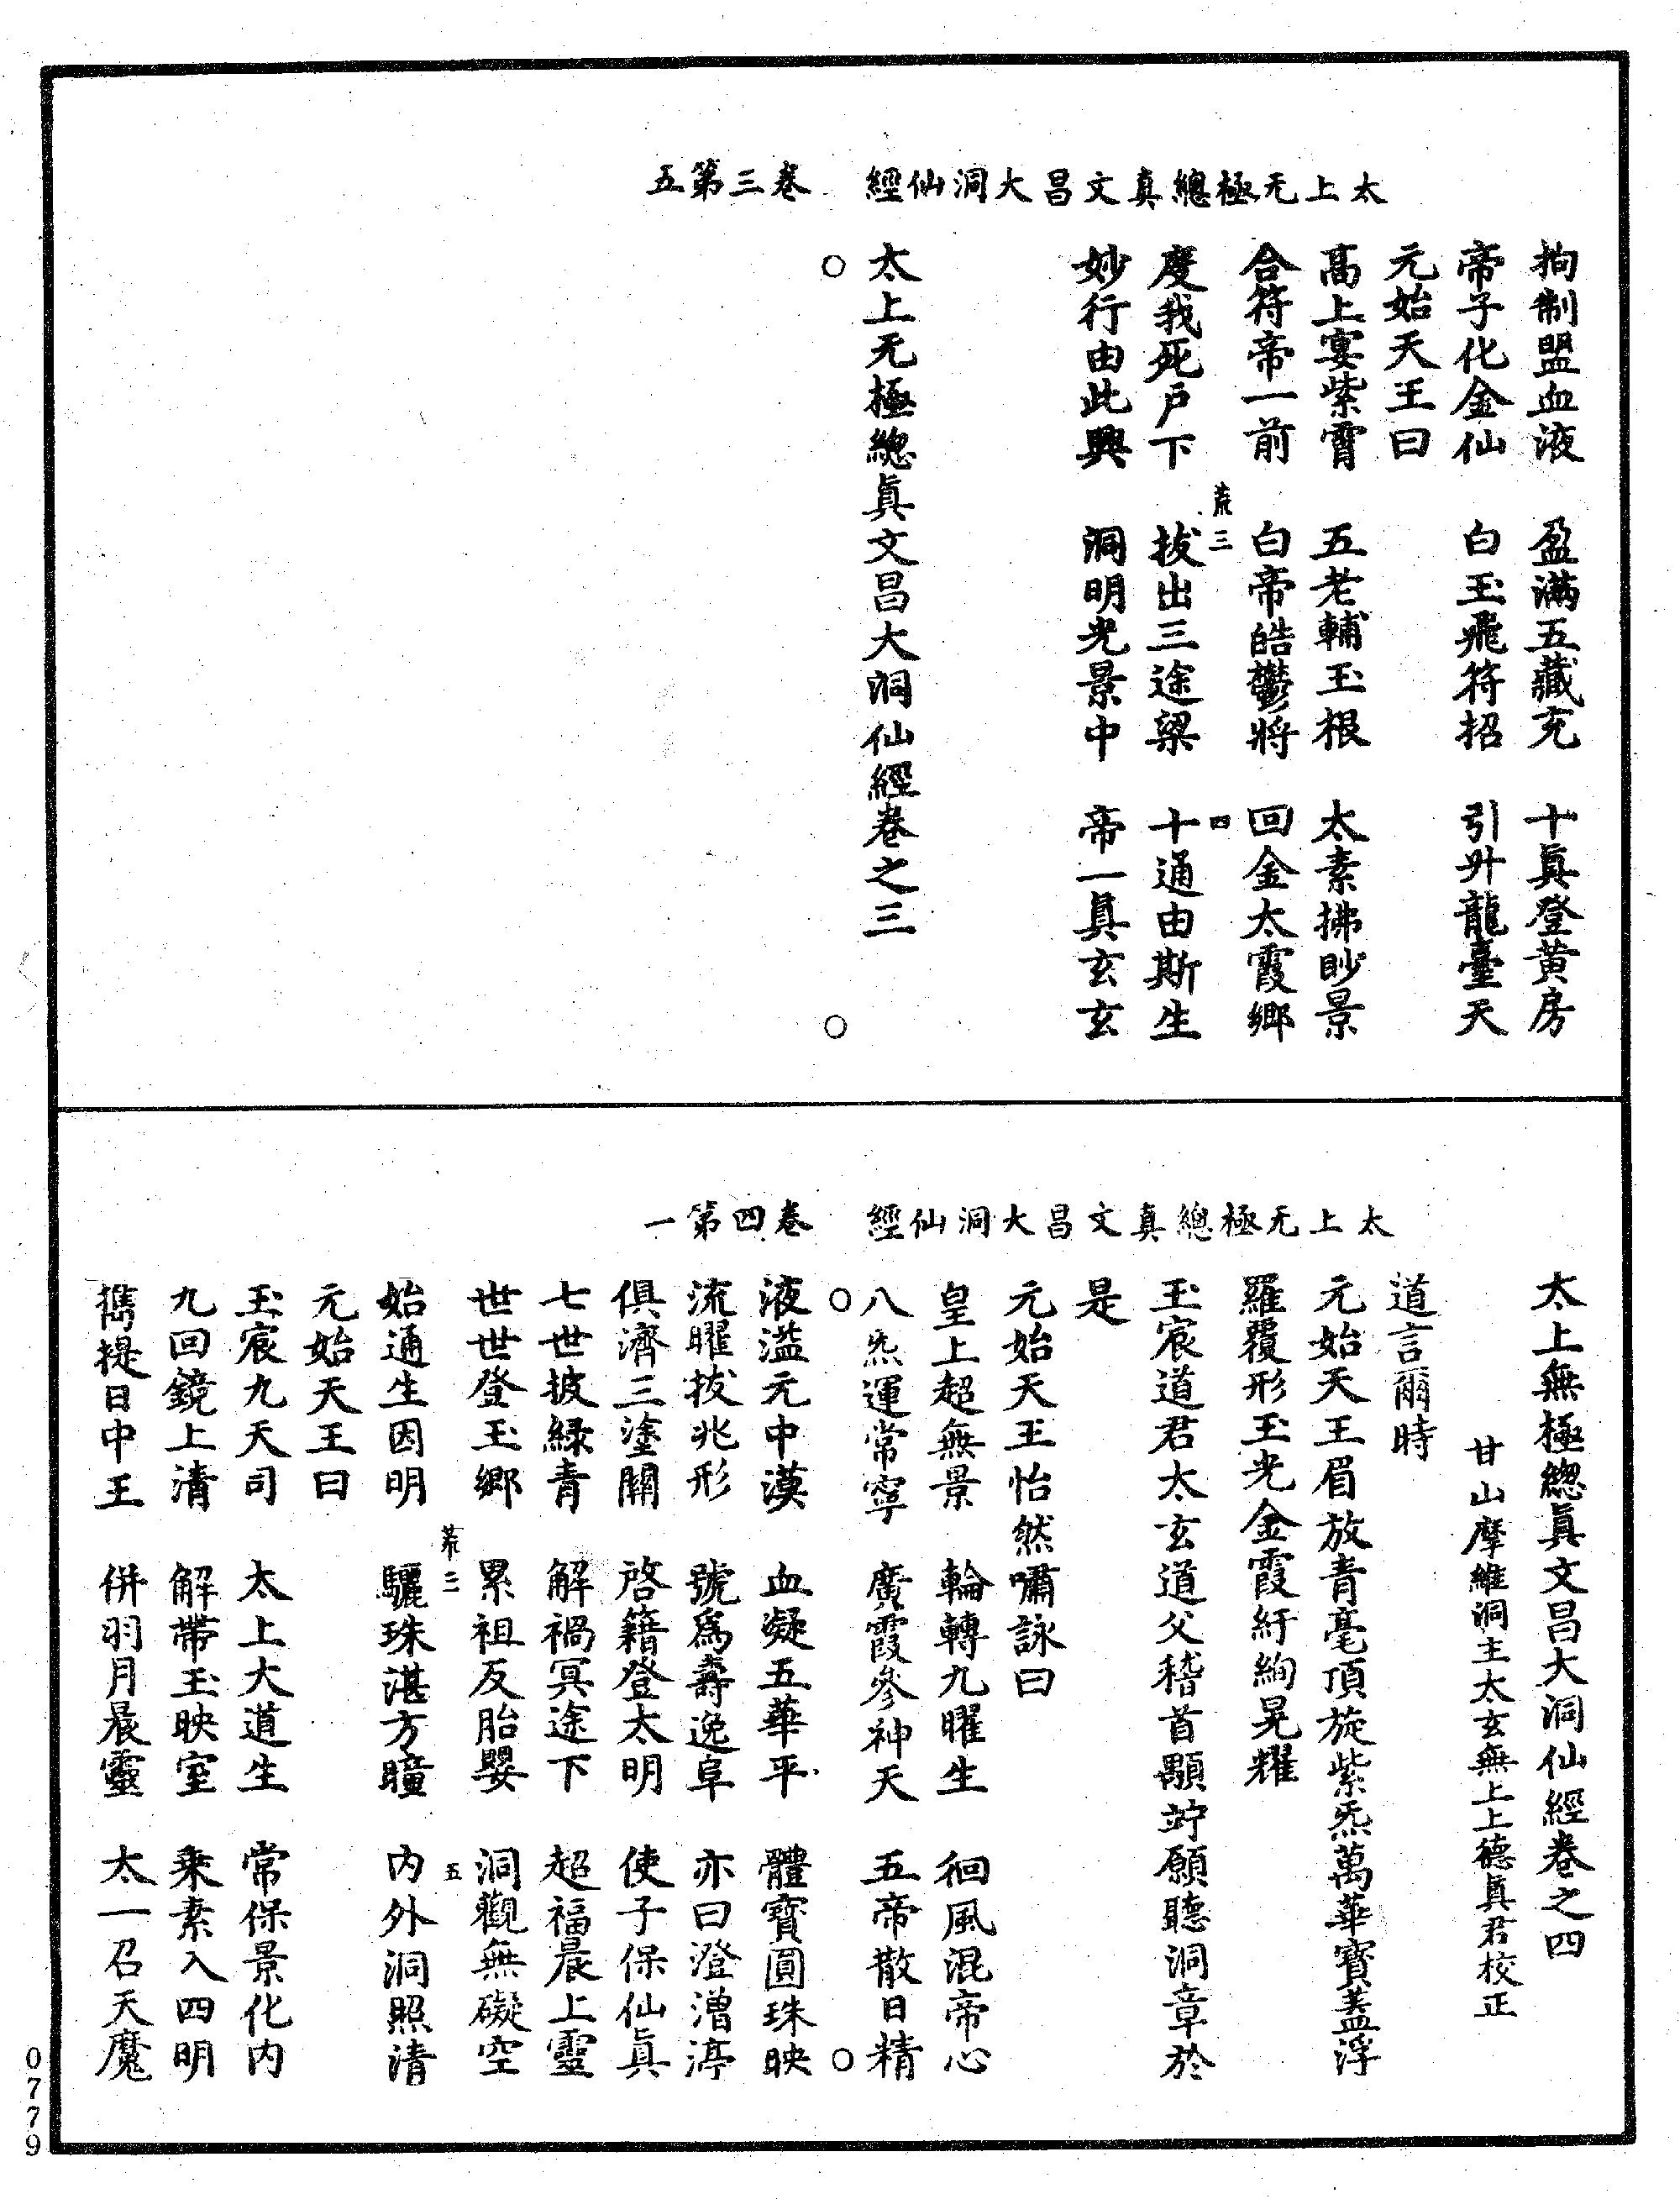 太上无極總真文昌大洞仙經　卷三第五
拘制盟血液　盈滿五藏充　十眞登黃房
帝子化金仙　白玉飛符招　引升龍臺天
元始天王曰
高上宴紫霄　五老輔玉根　太素拂眇景
合符帝一前　白帝皓鬱將　回金太霞鄉
荒三　四
度我死戶下　拔出三途梁　十通由斯生
妙行由此興　洞明光景中　帝一眞玄玄
太上无極總眞文昌大洞仙經卷之三
太上无極總真文昌大洞仙經　卷四第一
太上無極總眞文昌大洞仙經卷之四
甘山摩維洞主太玄無上上德眞君校正
道言爾時
元始天王眉放青毫頂旋紫炁萬華寶蓋浮
羅覆形玉光金霞紆絢晃耀
玉宸道君太玄道父稽首顒竚願聽洞章於
是
元始天王怡然嘯詠曰
皇上超無景　輪轉九曜生　徊風混帝心
八炁運常寧　廣霞參神天　五帝散日精
液溢元中漠　血凝五華平　體寶圓珠映
流曜拔兆形　號爲壽逸阜　亦曰澄渻渟
俱濟三塗關　啓籍登太明　使子保仙眞
七世披綠青　解禍冥途下　超福晨上靈
世世登玉鄉　累祖反胎嬰　洞觀無礙空
荒二　五
始通生因明　驪珠湛方瞳　內外洞照清
元始天王曰
玉宸九天司　太上大道生　常保景化內
九回鏡上清　解帶玉映室　乘素入四明
攜提日中王　併羽月晨靈　太一召天魔
0779